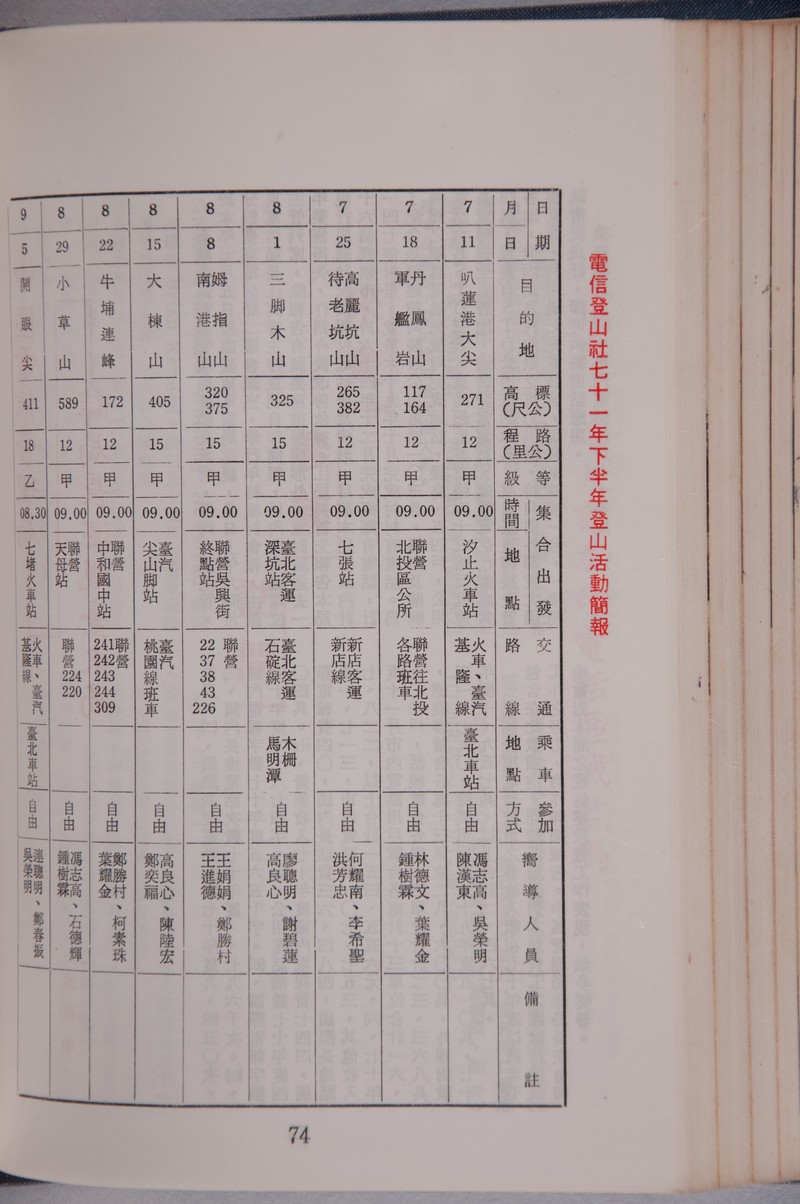 電信登山社七十一年下半年登山活動簡報
日期 月 日
目的地
標高(公尺)
路程(公里)
等級
集合出發 時間 地點
交通路線
乘車地點
參加方式
嚮導人員
備註
7
11
叭蓮港大尖
271
12
甲
09.00
汐止火車站
火車、臺汽
基隆線
臺北車站
自由
馮志高、吳榮明
陳漢東
7
18
丹鳳山
軍艦岩
117
164
12
甲
09.00
聯營
北投區公所
聯營往北投
各路班車
自由
林德文、葉耀金
鍾樹霖
7
25
高麗坑山
待老坑山
265
382
12
甲
09.00
七張站
新店客運
新店線
自由
何耀南、李希聖
洪芳忠
8
1
三脚木山
325
15
甲
09.00
臺北客運
深坑站
臺北客運
石碇線
木柵
馬明潭
自由
廖聰明、謝碧蓮
高良心
8
8
姆指山
南港山
320
375
15
甲
09.00
聯營吳興街
終點站
聯營
22
37
38
43
226
自由
王娟娟、鄭勝村
王進德
8
15
大棟山
405
15
甲
09.00
臺汽
尖山脚站
臺汽
桃園線班車
自由
高良心、陳陸宏
鄭奕福
8
22
牛埔連峰
172
12
甲
09.00
聯營
中和國中站
聯營
241
242
243
244
309
自由
鄭勝村、柯素珠
葉耀金
8
29
小草山
589
12
甲
09.00
聯營
天母站
聯營
224
220
自由
馮志高、石德輝
鍾樹霖
9
5
開眼尖
411
18
乙
08.30
七堵火車站
火車、臺汽
基隆線
臺北車站
自由
連聰明、鄭春振
吳榮明
74